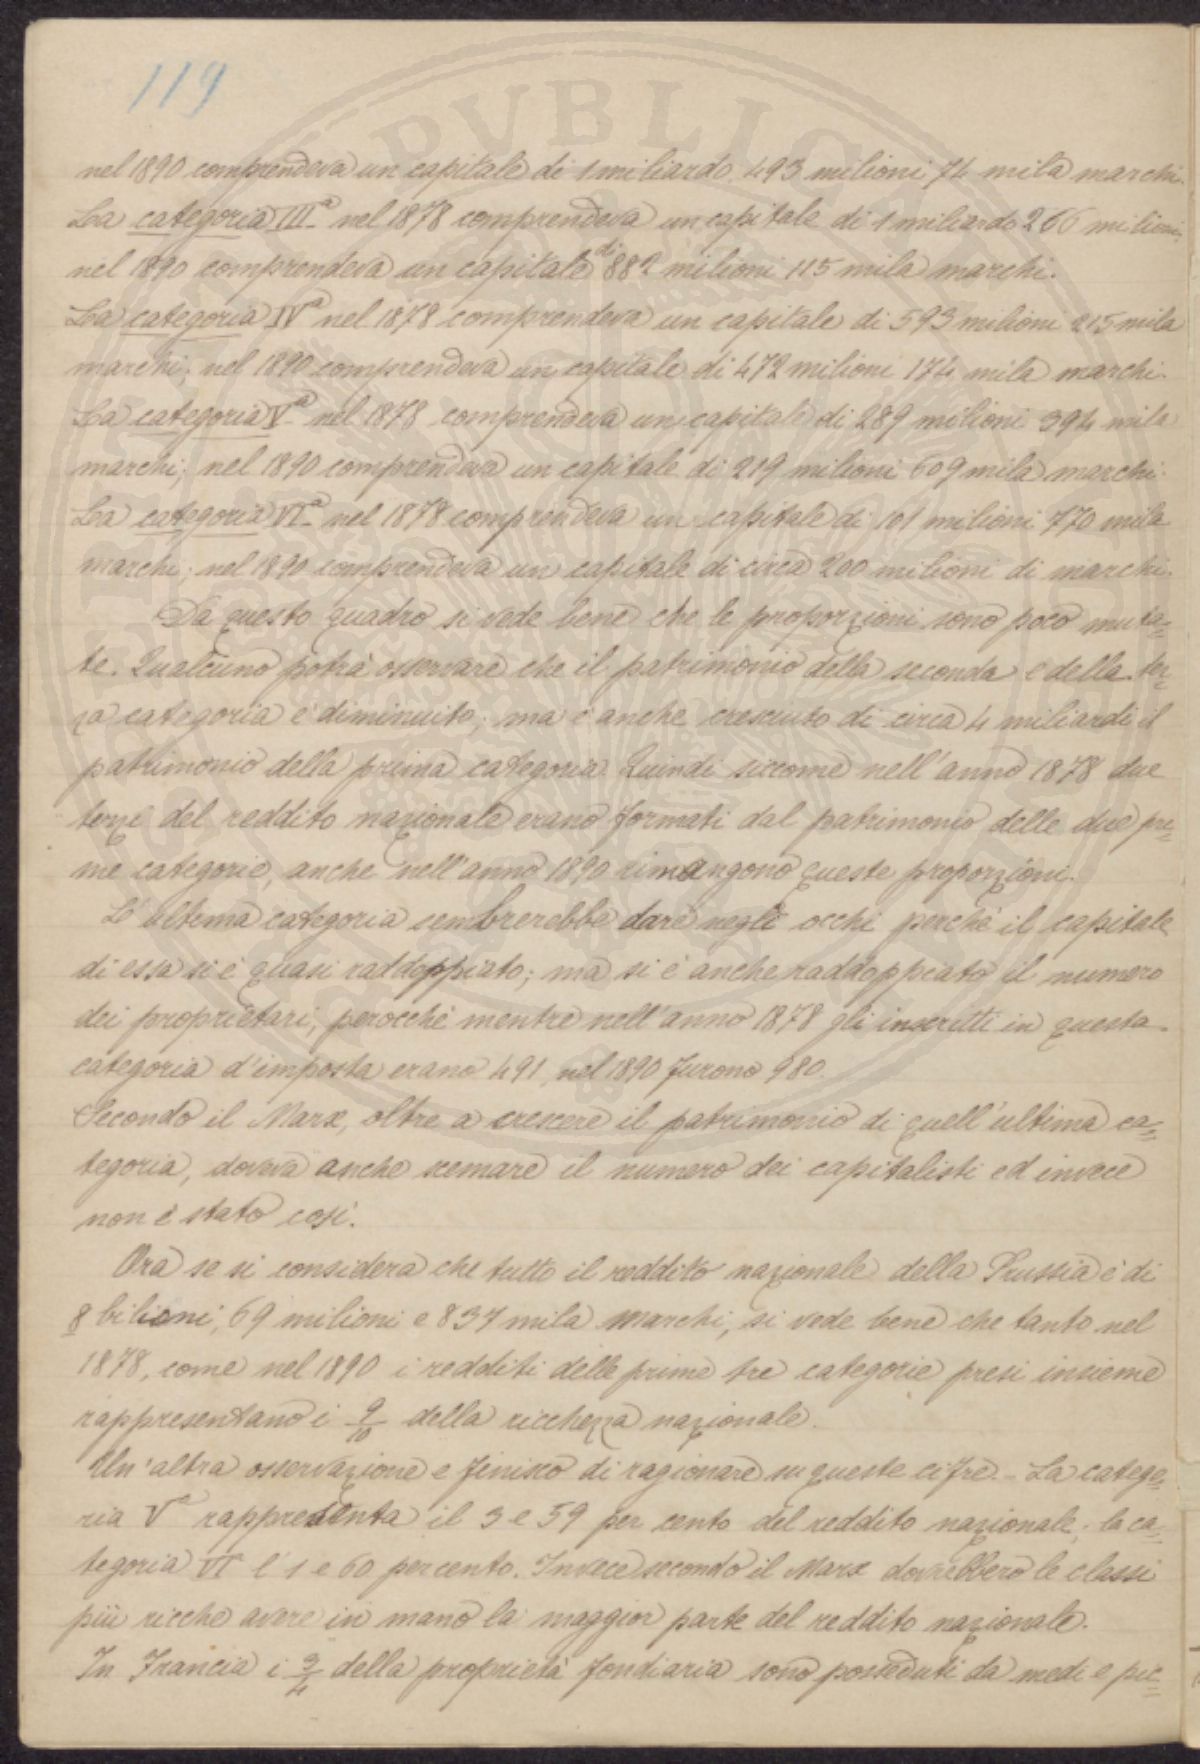 119
nel 1890 comprendeva un capitale di 1 miliardo 493 milioni 74 mila marchi.
La categoria IIIª nel 1878 comprendeva un capitale di 1 miliardo 266 milioni;
nel 1890 comprendeva un capitale di 882 milioni 115 mila marchi.
La categoria IVª nel 1878 comprendeva un capitale di 593 milioni 215 mila
marchi; nel 1890 comprendeva un capitale di 472 milioni 174 mila marchi.
La categoria Vª nel 1878 comprendeva un capitale di 289 milioni 394 mila
marchi; nel 1890 comprendeva un capitale di 219 milioni 609 mila marchi.
La categoria VIª nel 1878 comprendeva un capitale di 101 milioni 770 mila
marchi; nel 1890 comprendeva un capitale di circa 200 milioni di marchi.
Da questo quadro si vede bene che le proporzioni sono poco muta=
te. Qualcuno potrà osservare che il patrimonio della seconda e della ter=
za categoria è diminuito; ma è anche cresciuto di circa 4 miliardi il
patrimonio della prima categoria. Quindi siccome nell'anno 1878 due
terzi del reddito nazionale erano formati dal patrimonio delle due pri=
me categorie, anche nell'anno 1890 rimangono queste proporzioni.
L'ultima categoria sembrerebbe dare negli occhi perchè il capitale
di essa si è quasi raddoppiato; ma si è anche raddoppiato il numero
dei proprietari, perocchè mentre nell'anno 1878 gli inscritti in questa
categoria d'imposta erano 491, nel 1890 furono 980.
Secondo il Marx, oltre a crescere il patrimonio di quell'ultima ca=
tegoria, doveva anche scemare il numero dei capitalisti ed invece
non è stato così.
Ora se si considera che tutto il reddito nazionale della Prussia è di
8 bilioni, 69 milioni e 837 mila marchi, si vede bene che tanto nel
1878, come nel 1890 i redditi delle prime tre categorie presi insieme
rappresentano i 9/10 della ricchezza nazionale.
Un'altra osservazione e finisco di ragionare su queste cifre - La catego=
ria Vª rappresenta il 3 e 59 per cento del reddito nazionale; la ca=
tegoria VI l'1 e 60 per cento. Invece secondo il Marx dovrebbero le classi
più ricche avere in mano la maggior parte del reddito nazionale.
In Francia i 3/4 della proprietà fondiaria sono posseduti da medi e pic=